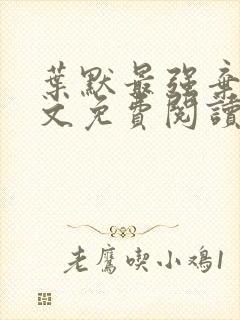 葉默最强棄
文免費閱讀
老鷹喫小鸡1